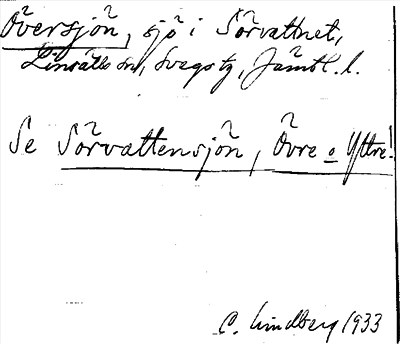 Översjön, sjö i Sörvattnet,
Linsälls sn, Svegs tg, Jämtl. l.
Se Sörvattensjön, Övre o Yttre!
C. Lindberg 1933